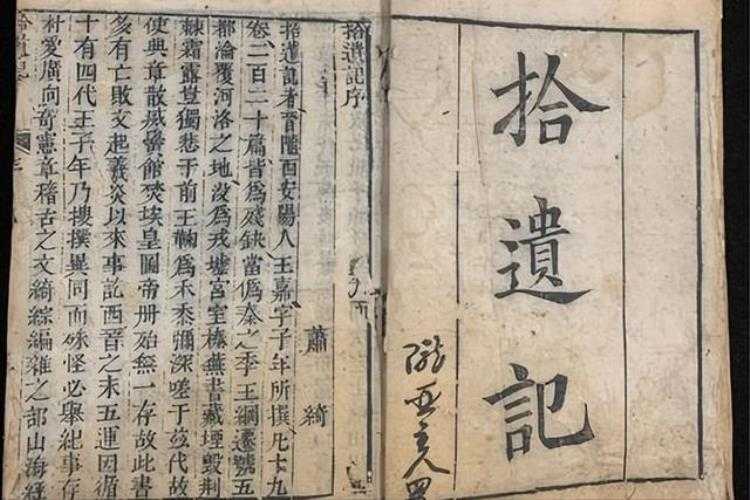 拾遺記
拾遺記序
蕭綺
拾遺記者晉隴西安陽人王嘉字子年所撰凡十九
卷二百二十篇皆爲殘缺當僞秦之季王綱遷號五
都淪覆河洛之地沒爲戎墟宮室榛蕪書藏堙毀荆
棘霜露豈獨悲于前王鞠爲禾黍彌深嗟于茲代故
使典章散滅黌館焚埃皇圖帝册殆無一存故此書
多有亡敗文起羲炎以來事訖西晉之末五運因循
十有四代王子年乃搜撰異同而殊怪必舉紀事存
朴愛廣向奇憲章稽古之文綺綜編雜之部山海經